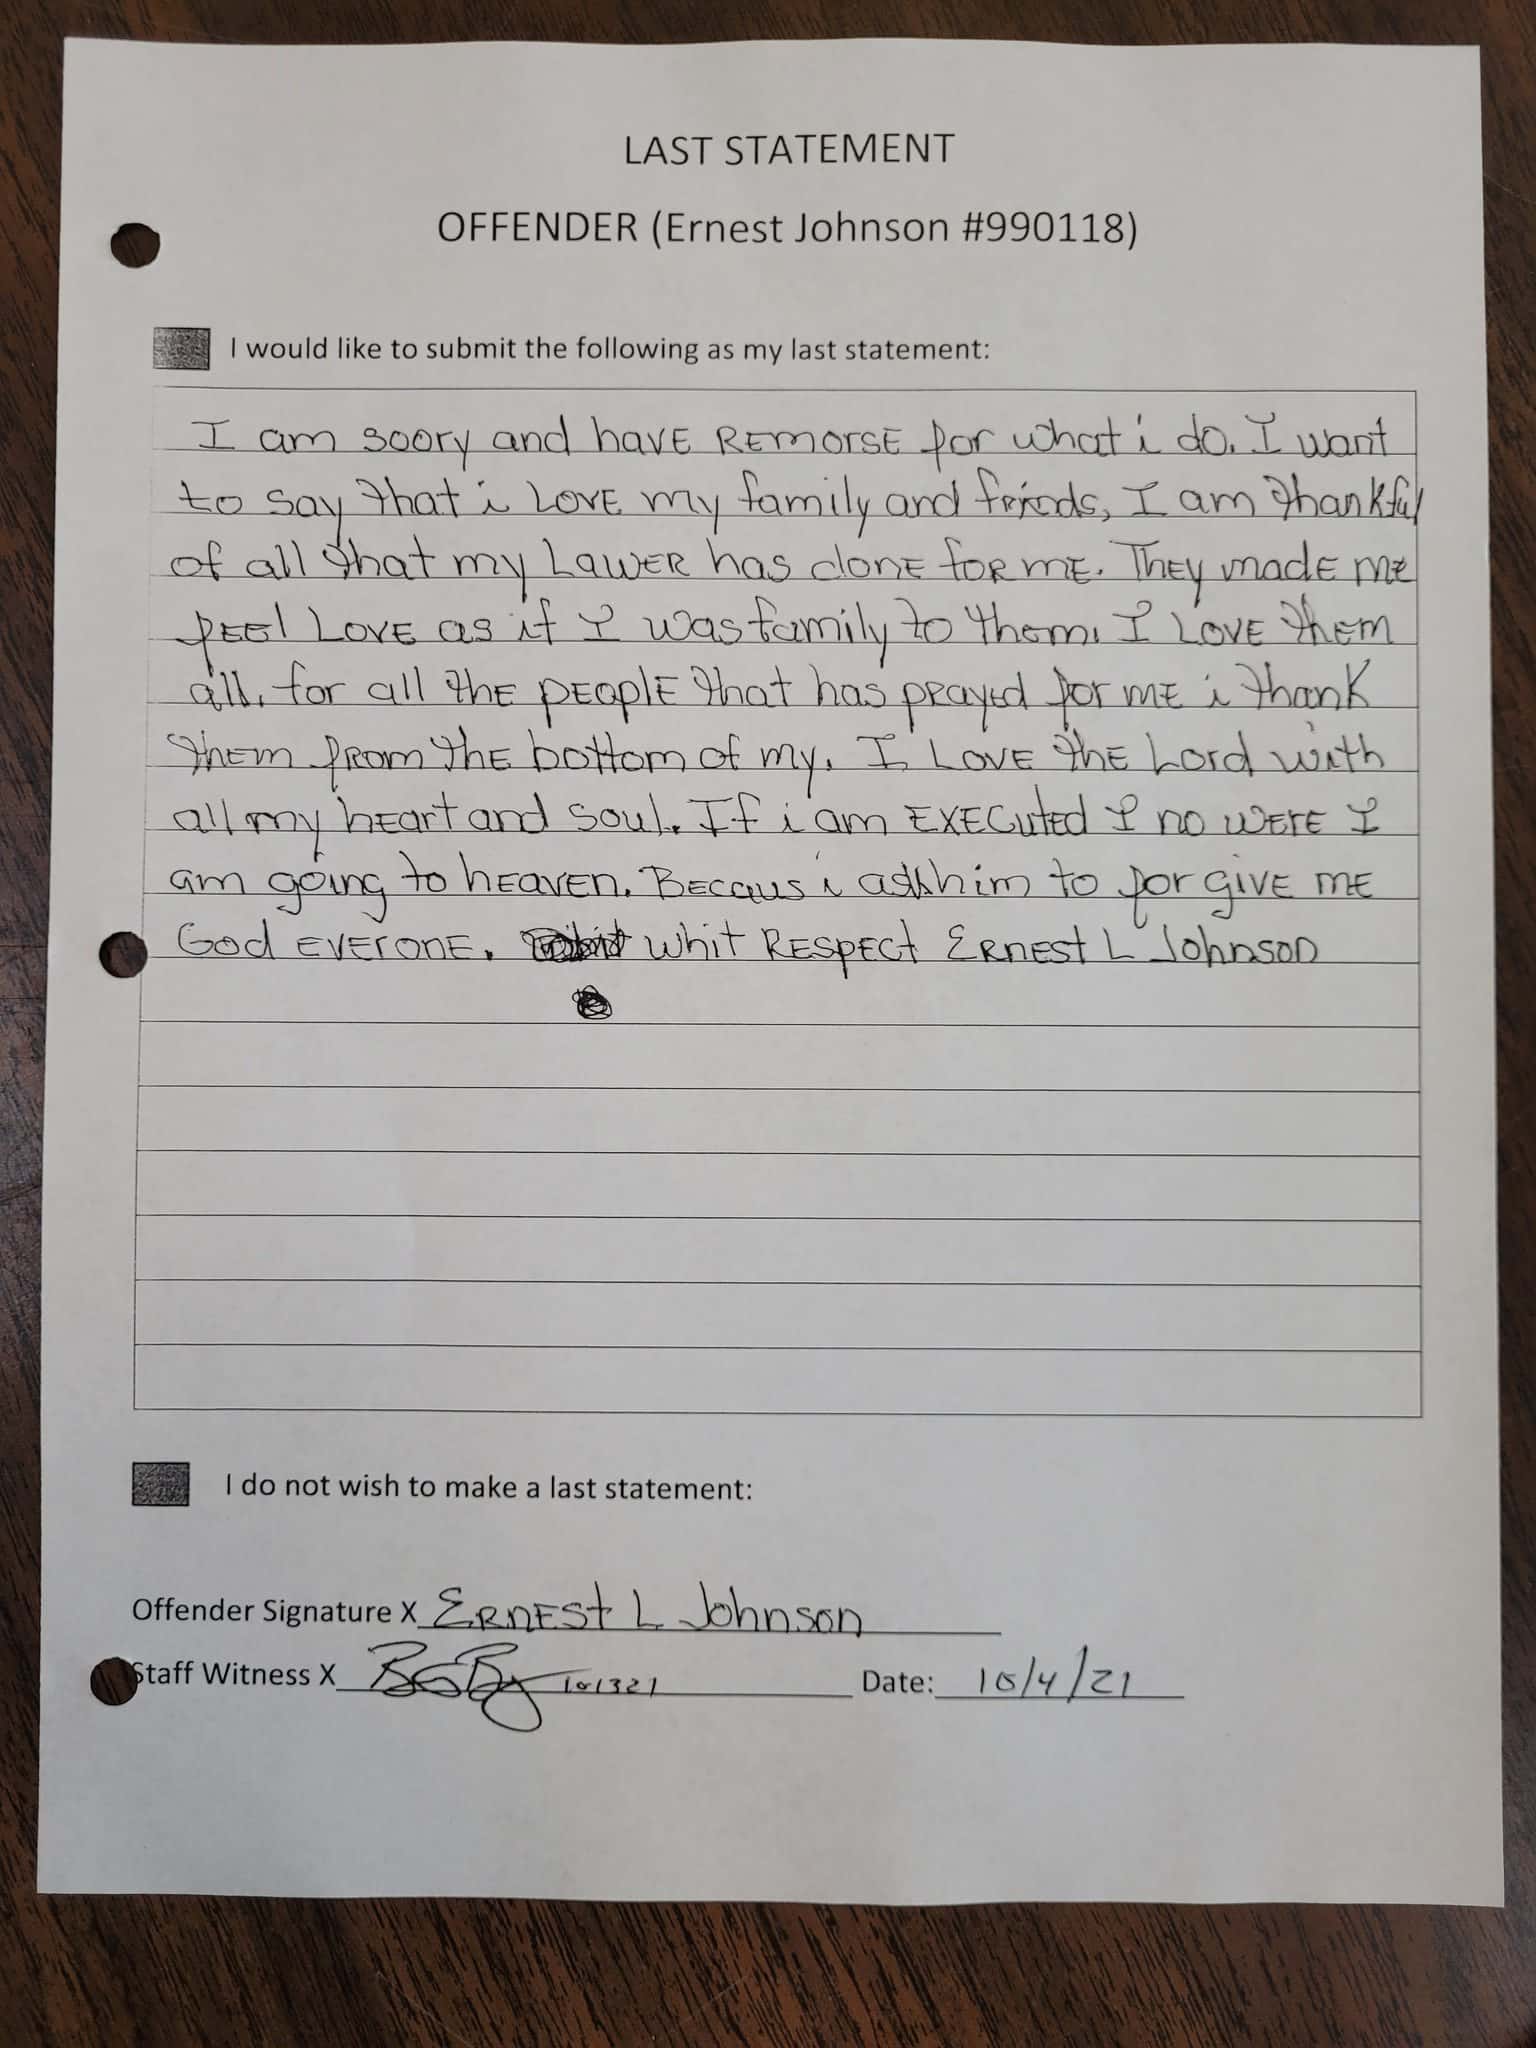 LAST STATEMENT
OFFENDER (Ernest Johnson #990118)
I would like to submit the following as my last statement:
I am soory and have REmorsE for what i do. I want
to say that i LovE my family and friends, I am thankful
of all that my LawER has donE foR mE. ThEy madE mE
feel LovE as if I was family to them. I LovE thEm
all. for all thE pEoplE that has pRayed for mE i thank
them fRom thE bottom of my. I LovE thE Lord with
all my hEart and soul. If i am EXECuted I no wErE I
am going to hEavEn. BEcaus i ask him to forgivE mE
God EvEronE. whit REspEct ERnEst L Johnson
I do not wish to make a last statement:
Offender Signature X ERnEst L Johnson
Staff Witness X Date: 10/4/21